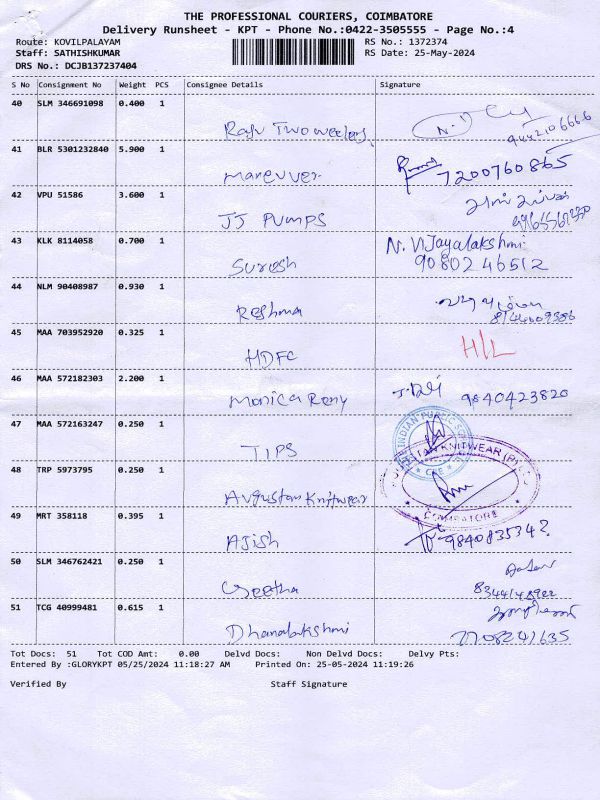 THE PROFESSIONAL COURIERS, COIMBATORE
Delivery Runsheet - KPT - Phone No.:0422-3505555 - Page No.:4
Route: KOVILPALAYAM RS No.: 1372374
Staff: SATHISHKUMAR RS Date: 25-May-2024
DRS No.: DCJB137237404
S No Consignment No Weight PCS Consignee Details Signature
40 SLM 346691098 0.400 1 Raju Twoweelers 9442106666
41 BLR 5301232840 5.900 1 Maneuver 7200760865
42 VPU 51586 3.600 1 JJ PUMPS
43 KLK 8114058 0.700 1 Suresh N. Vijayalakshmi
9080246512
44 NLM 90408987 0.930 1 Reshma
45 MAA 703952920 0.325 1 HDFC H/L
46 MAA 572182303 2.200 1 Monica Reny 9840423820
47 MAA 572163247 0.250 1 TIPS
48 TRP 5973795 0.250 1 Avgustan Knitwear
KNITWEAR (P)
COIMBATORE
49 MRT 358118 0.395 1 Ajish 9840835342
50 SLM 346762421 0.250 1 Geetha
51 TCG 40999481 0.615 1 Dhanalakshmi 7708241635
Tot Docs: 51 Tot COD Amt: 0.00 Delvd Docs: Non Delvd Docs: Delvy Pts:
Entered By :GLORYKPT 05/25/2024 11:18:27 AM Printed On: 25-05-2024 11:19:26
Verified By Staff Signature